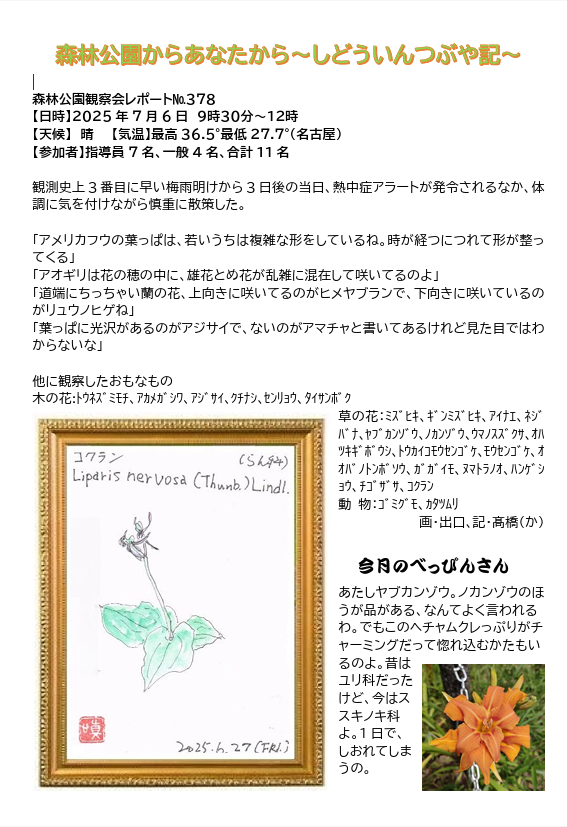 森林公園からあなたから～しどういんつぶや記～
森林公園観察会レポート№378
【日時】2025年7月6日 9時30分～12時
【天候】 晴 【気温】最高36.5°最低27.7°(名古屋)
【参加者】指導員7名、一般4名、合計11名
観測史上3番目に早い梅雨明けから3日後の当日、熱中症アラートが発令されるなか、体
調に気を付けながら慎重に散策した。
「アメリカフウの葉っぱは、若いうちは複雑な形をしているね。時が経つにつれて形が整っ
てくる」
「アオギリは花の穂の中に、雄花とめ花が乱雑に混在して咲いてるのよ」
「道端にちっちゃい蘭の花、上向きに咲いてるのがヒメヤブランで、下向きに咲いているの
がリュウノヒゲね」
「葉っぱに光沢があるのがアジサイで、ないのがアマチャと書いてあるけれど見た目ではわ
からないな」
他に観察したおもなもの
木の花:ﾄｳﾈｽﾞﾐﾓﾁ、ｱｶﾒｶﾞｼﾜ、ｱｼﾞｻｲ、ｸﾁﾅｼ、ｾﾝﾘｮｳ、ﾀｲｻﾝﾎﾞｸ
草の花:ﾐｽﾞﾋｷ、ｷﾞﾝﾐｽﾞﾋｷ、ｱｲﾅｴ、ﾈｼﾞ
ﾊﾞﾅ、ﾔﾌﾞｶﾝｿﾞｳ、ﾉｶﾝｿﾞｳ、ｳﾏﾉｽｽﾞｸｻ、ｵﾊ
ﾂｷｷﾞﾎﾞｳｼ、ﾄｳｶｲｺﾓｳｾﾝｺﾞｹ、ﾓｳｾﾝｺﾞｹ、ｵ
ｵﾊﾞﾉﾄﾝﾎﾞｿｳ、ｶﾞｶﾞｲﾓ、ﾇﾏﾄﾗﾉｵ、ﾊﾝｹﾞｼ
ｮｳ、ﾁｺﾞｻﾞｻ、ｺｸﾗﾝ
動 物:ｺﾞﾐｸﾞﾓ、ｶﾀﾂﾑﾘ
画・出口、記・髙橋(か)
コクラン (らん科)
Liparis nervosa (Thunb.) Lindl.
2025.6.27(FRI.)
今月のべっぴんさん
あたしヤブカンゾウ。ノカンゾウのほ
うが品がある、なんてよく言われる
わ。でもこのヘチャムクレっぷりがチ
ャーミングだって惚れ込むかたもい
るのよ。昔は
ユリ科だった
けど、今はス
スキノキ科
よ。1日で、
しおれてしま
うの。